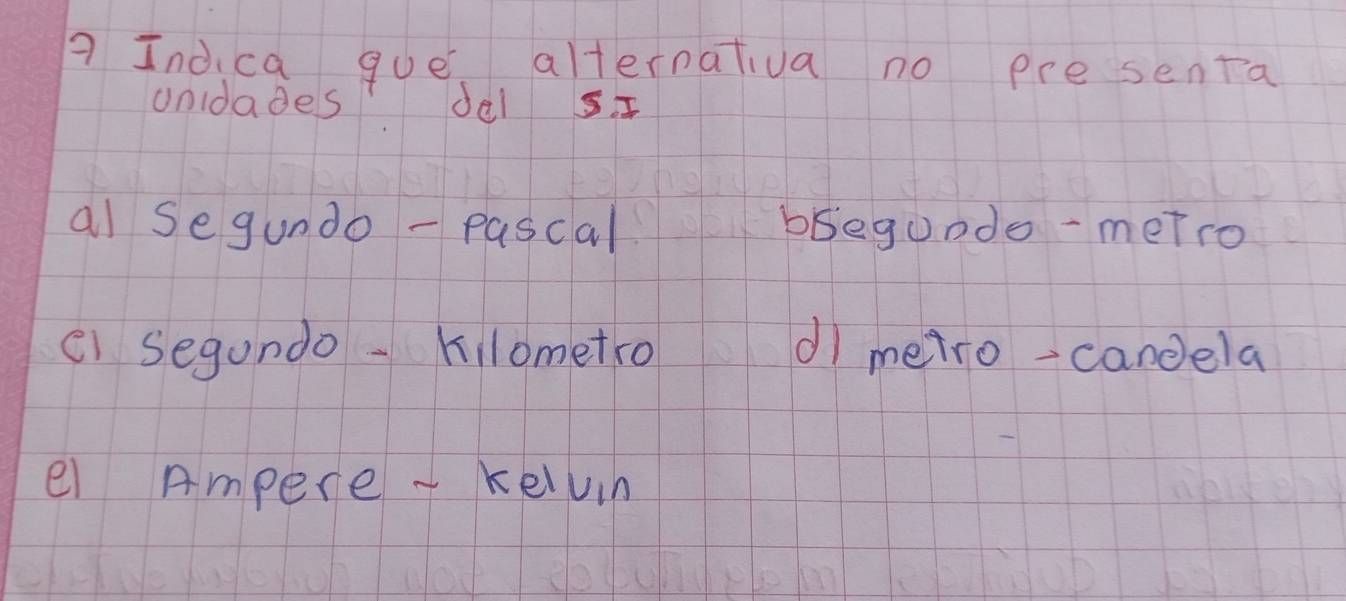 7 Indica qué alternativa no presenta
unidades del S.I
a) Segundo - Pascal b) Segundo - metro
c) Segundo - Kilometro d) metro - candela
e) Ampere - Kelvin